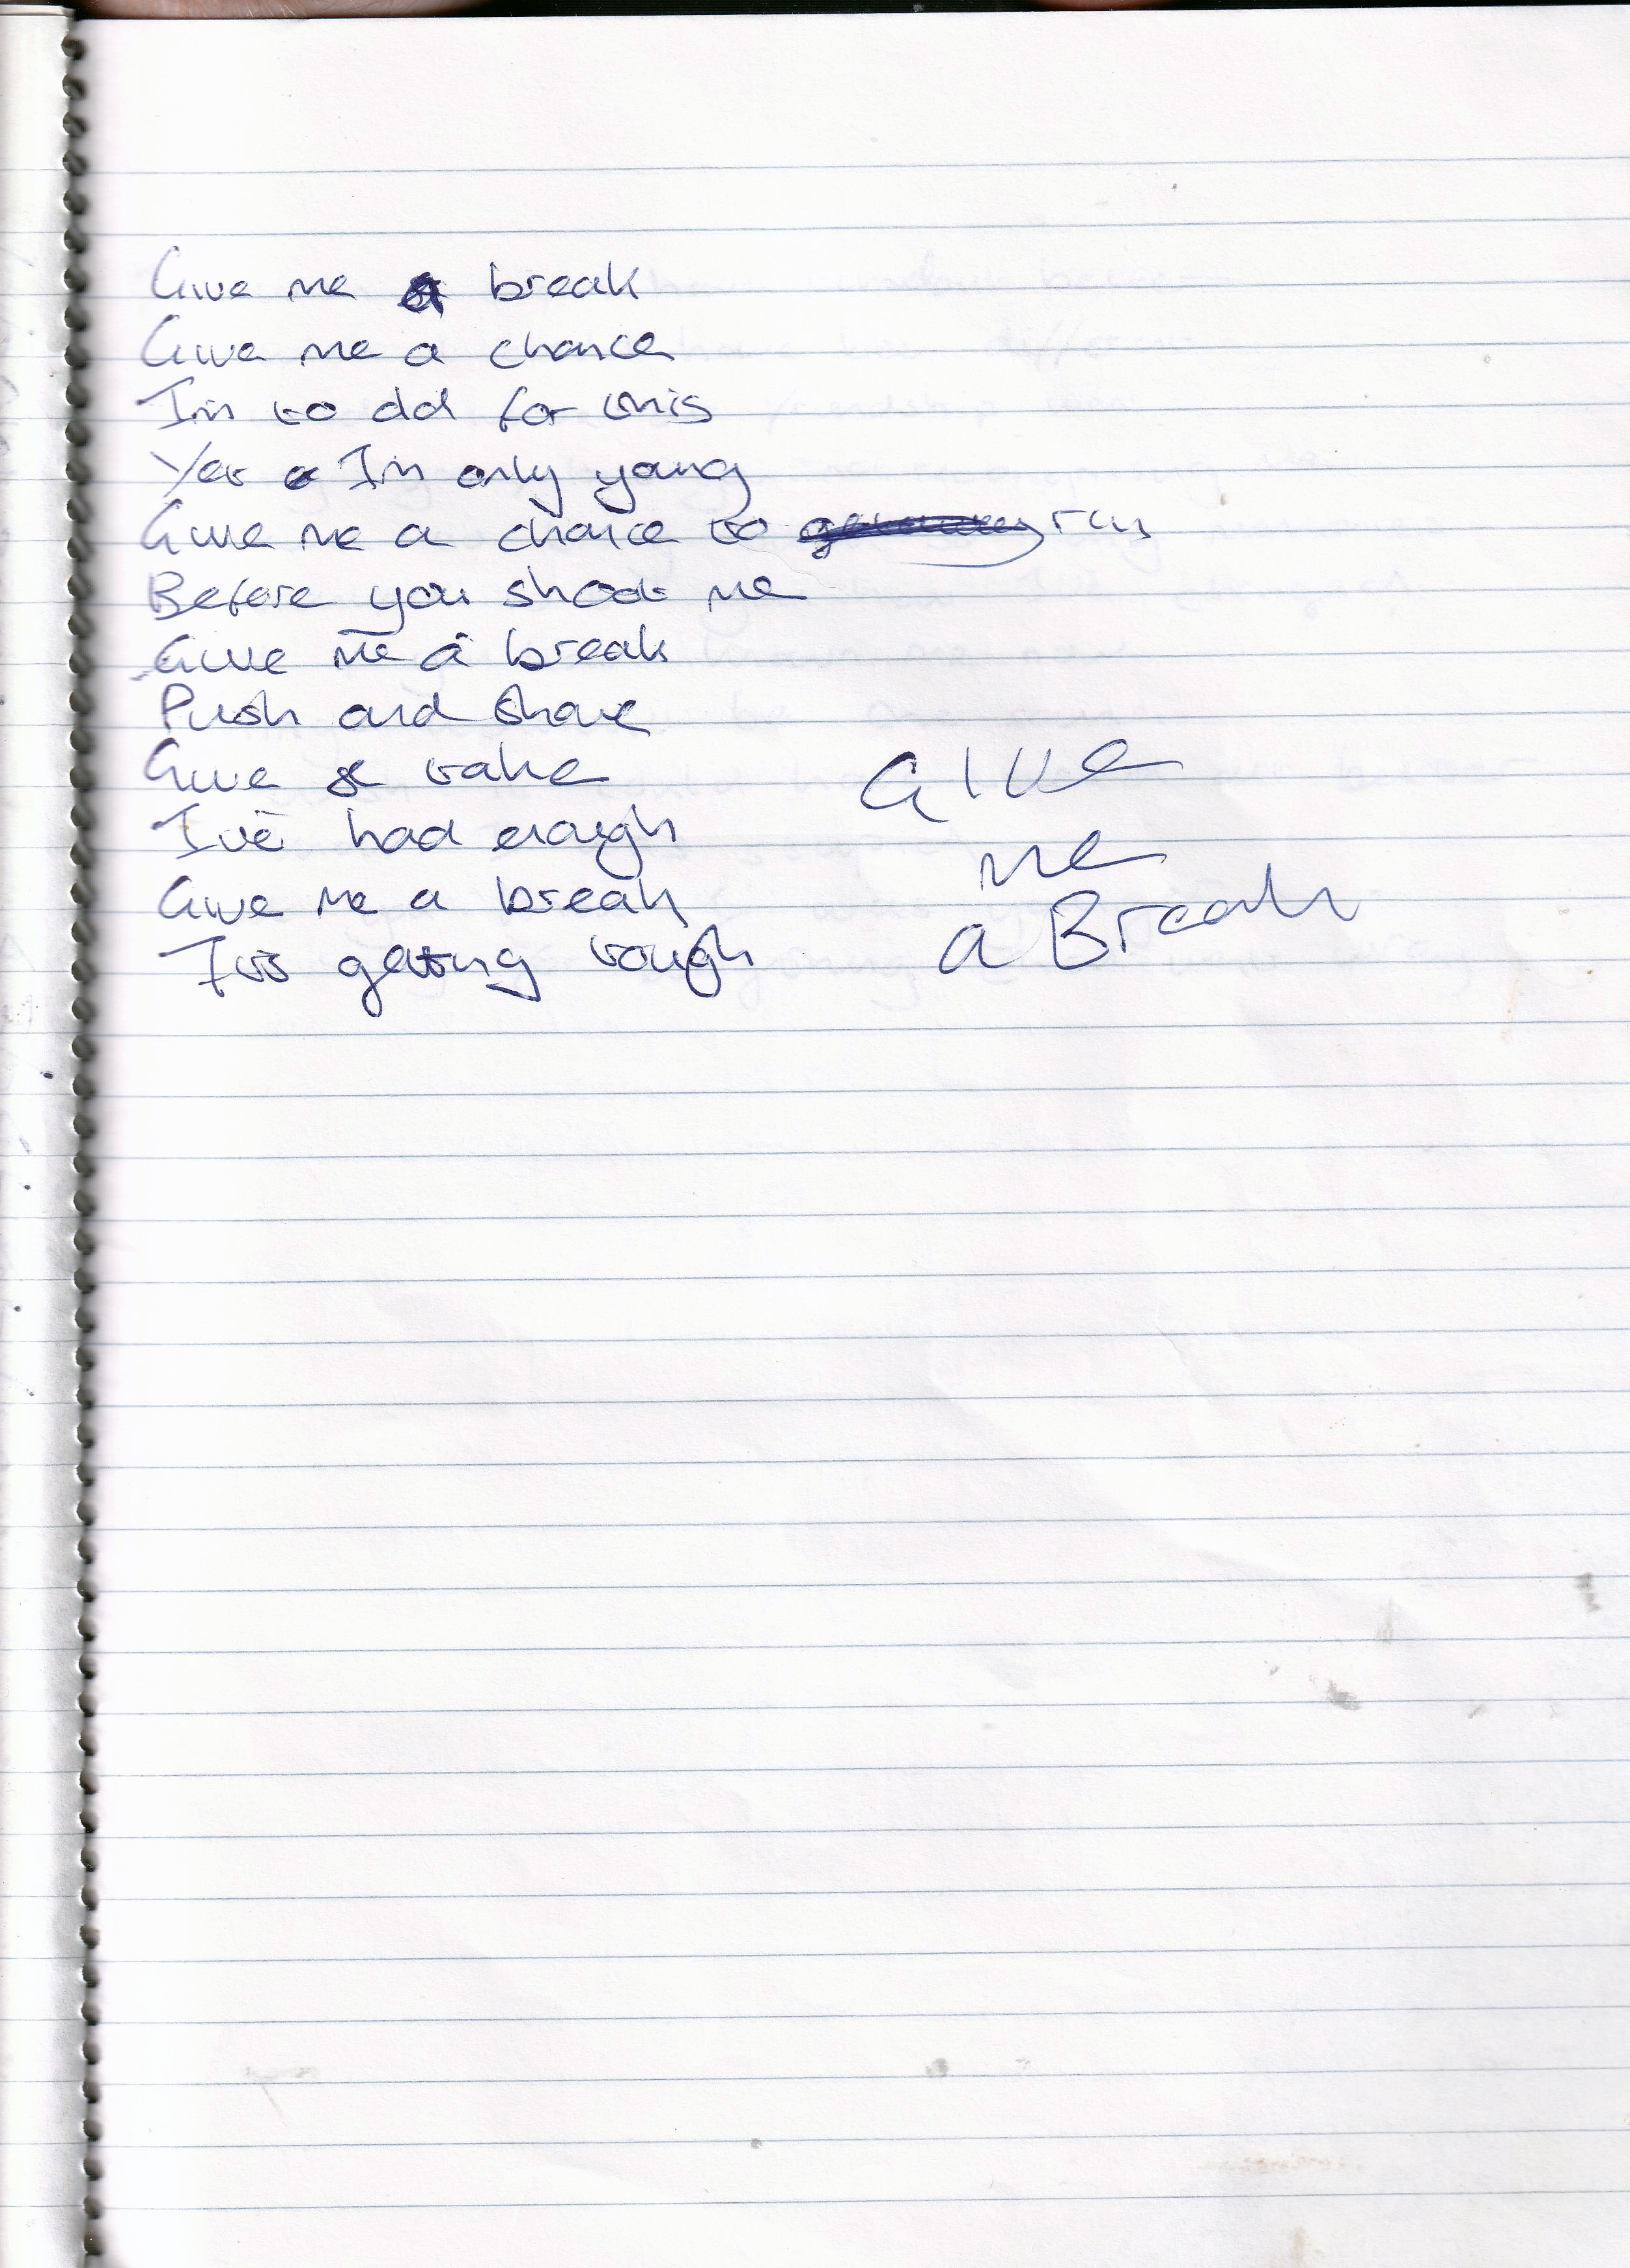 Give me a break
Give me a chance
I'm to old for this
Yet I'm only young
Give me a chance to run
Before you shoot me
Give me a break
Push and shove
Give & take
I've had enough
Give me a break
It's getting tough
Give
me
a Break